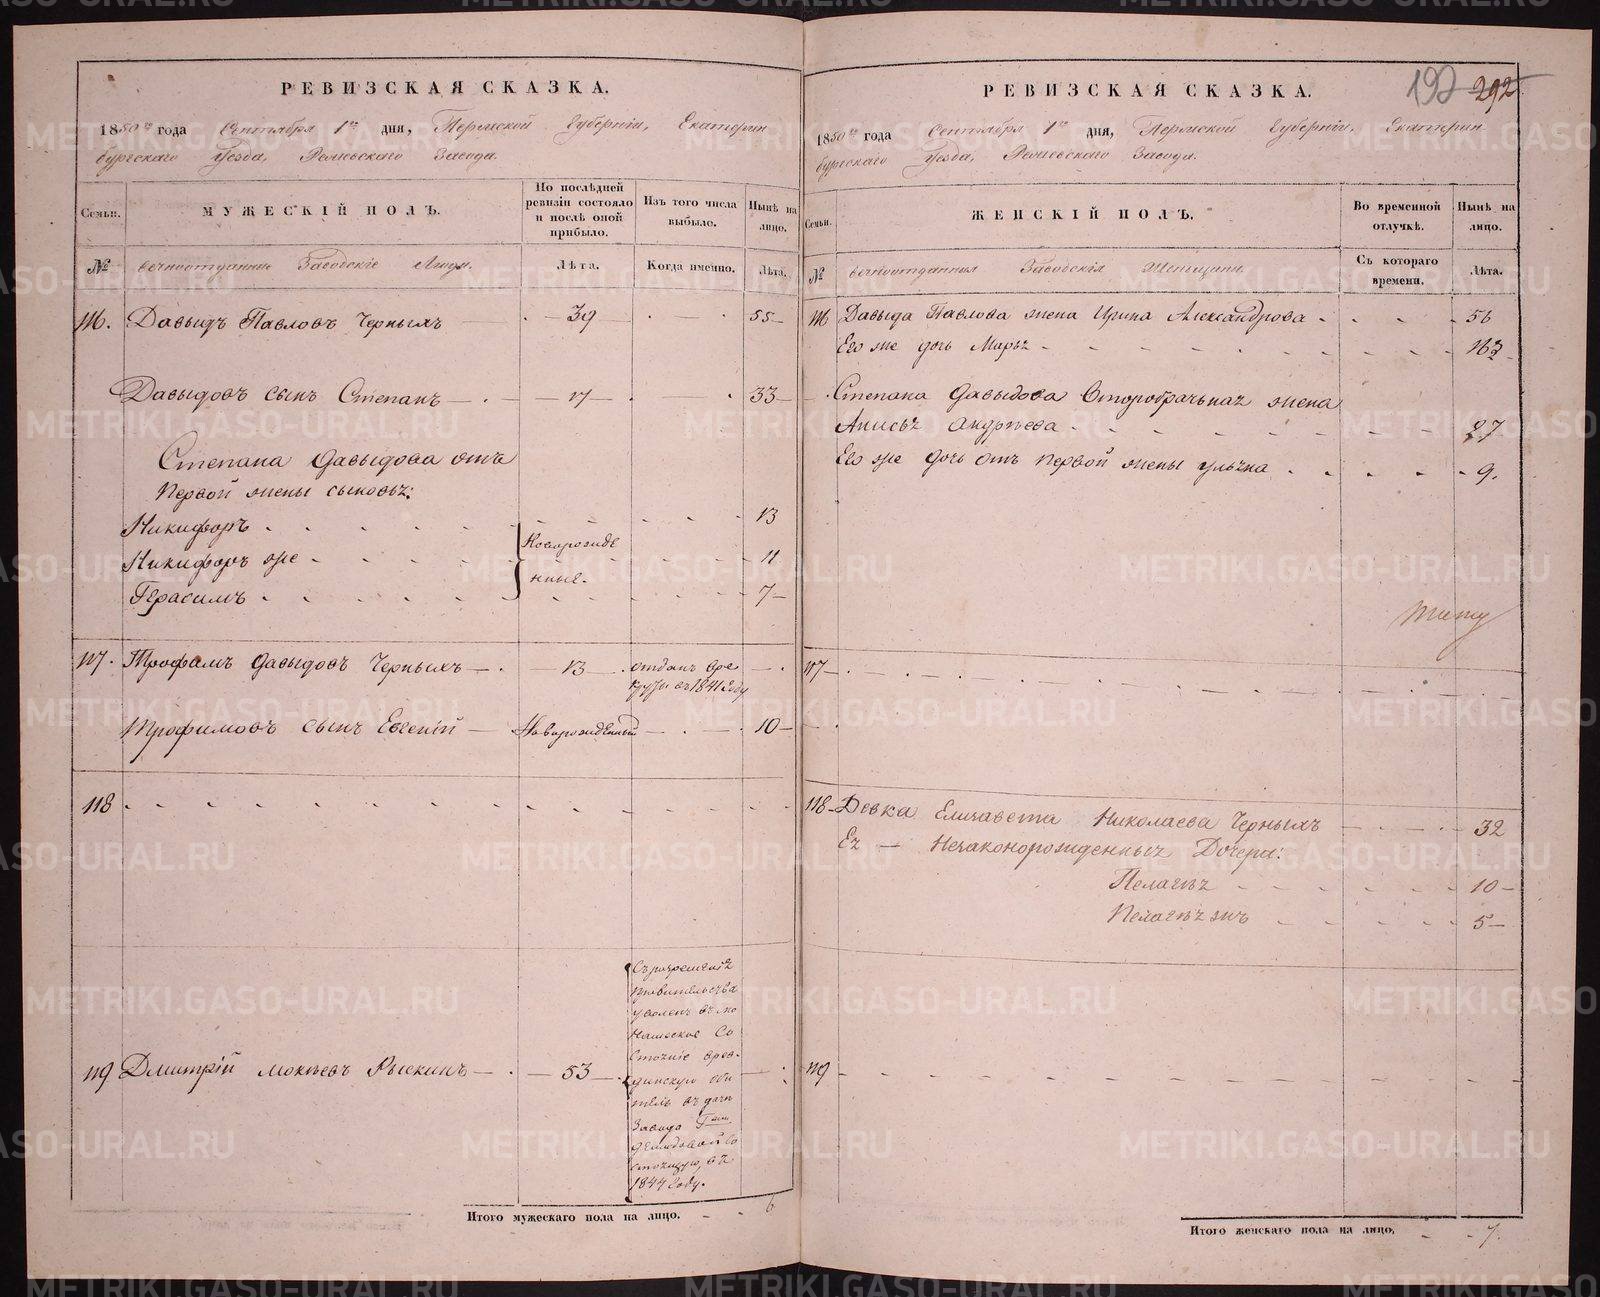 РЕВИЗСКАЯ СКАЗКА.
1850го года Сентября 1го дня, Пермской Губерніи, Екатерин
бургскаго Уезда, Режевскаго Завода.
Семьи.
МУЖЕСКІЙ ПОЛЪ.
По послѣдней
ревизіи состояло
и послѣ оной
прибыло.
Изъ того числа
выбыло.
Нынѣ на
лицо.
№
вечноотданные Заводскіе Люди.
Лѣта.
Когда именно.
Лѣта.
116. Давыдъ Павловъ Черныхъ 39 55
Давыдовъ сынъ Степанъ 17 33
Степана Давыдова отъ
первой жены сыновья:
Никифоръ 13
Никифоръ же 11
Герасимъ 7
Новорожде
ные.
117. Трофимъ Давыдовъ Черныхъ 13 отданъ вре
круты въ 1841 году
Трофимовъ сынъ Евгеній Новорожденный 10
118
119 Дмитрій Мокѣевъ Рыскинъ 53
Съ разрешенія
Правительства
уволенъ въ мо
нашеское Со
стояніе
обитель въ дачѣ
Завода Гжи
Демидовой Со
стоящую, въ
1844 году.
Итого мужескаго пола на лицо. 6
РЕВИЗСКАЯ СКАЗКА.
192 292
1850го года Сентября 1го дня, Пермской Губерніи, Екатерин
бургскаго Уезда, Режевскаго Завода.
Семьи.
ЖЕНСКІЙ ПОЛЪ.
Во временной
отлучкѣ.
Нынѣ на
лицо.
№
вечноотданныя Заводскія Женщины.
Съ котораго
времени.
Лѣта.
116 Давыда Павлова жена Ирина Александрова 56
Его же дочь Марья 163
Степана Давыдова Второбрачьная жена
Анисья Андрѣева 27
Его же дочь отъ первой жены Ульяна 9.
117
118 Девка Елизавета Николаева Черныхъ 32
Ея Незаконорожденныя Дочери:
Пелагѣя 10
Пелагѣя жъ 5
119
Итого женскаго пола на лицо. 7.
METRIKI.GASO-URAL.RU